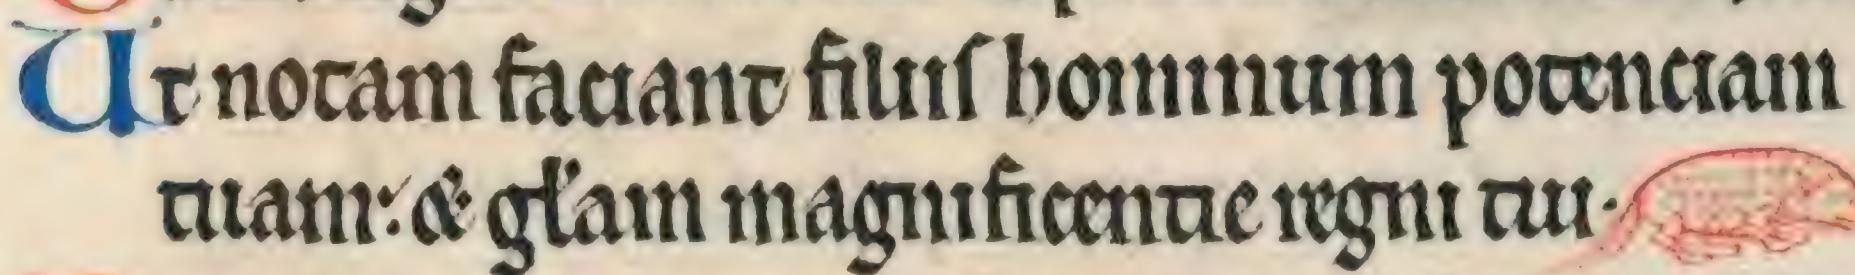 Ut notam faciant filiis hominum potenciam
tuam: & gl'am magnificentie regni tui·